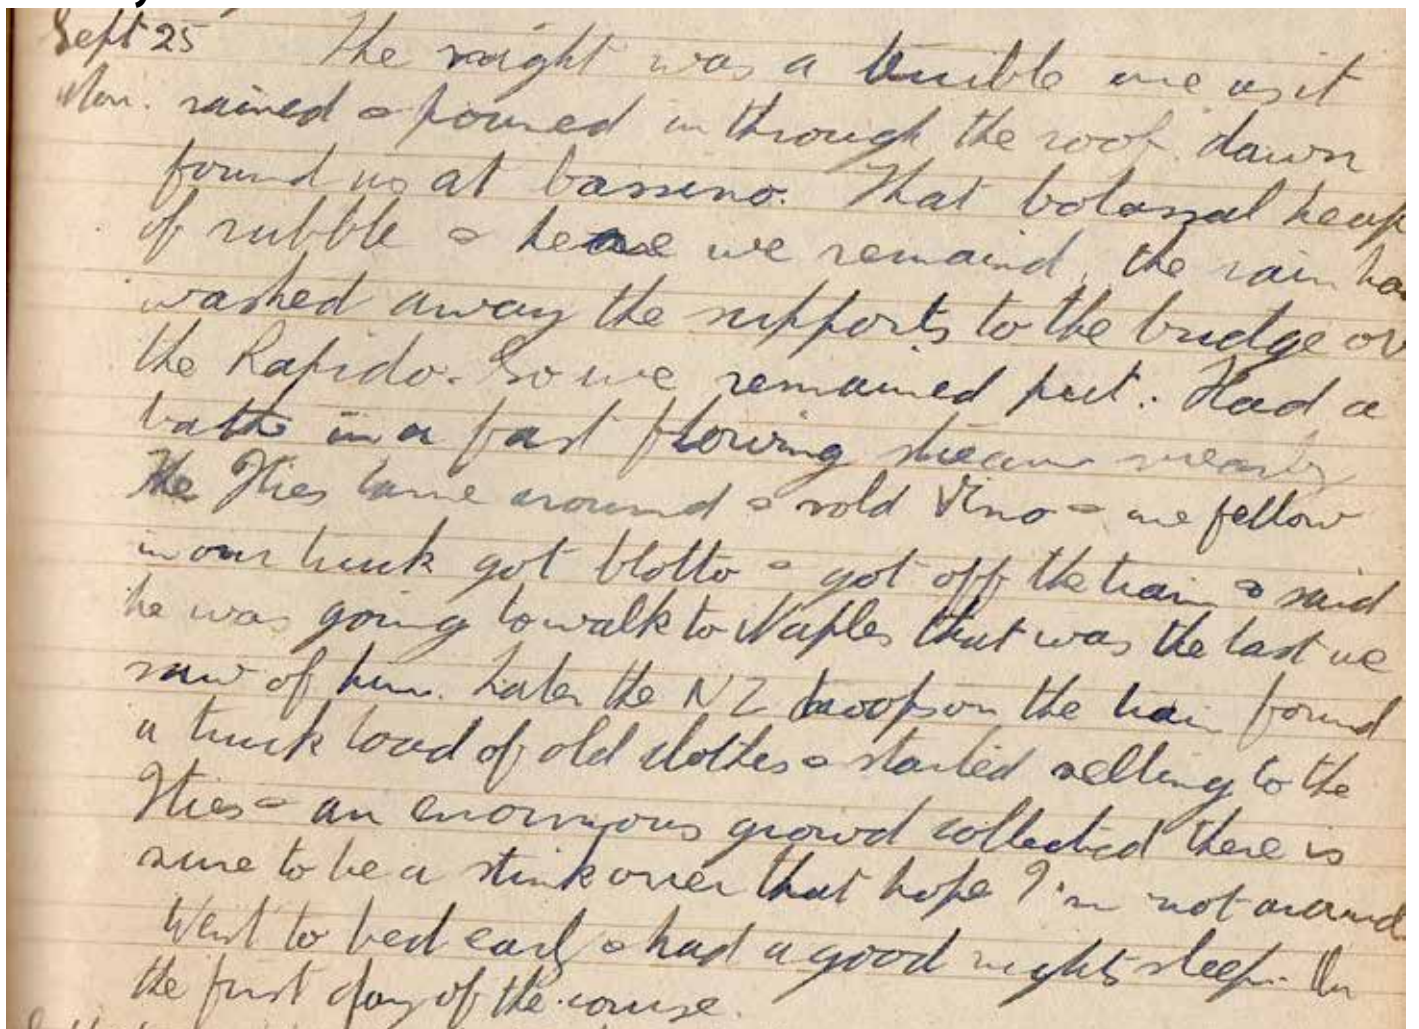 Sept 25 The night was a terrible one as it
Mon. rained & poured in through the roof. dawn
found us at Cassino. That colossal heap
of rubble & here we remaind, the rain had
washed away the supports to the bridge ov
the Rapido. So we remained put. Had a
bath in a fast flowing stream nearby
The Ities came around & sold Vino & one fellow
in our truck got blotto & got off the train & said
he was going to walk to Naples that was the last we
saw of him. Later the NZ troops on the train found
a truck load of old clothes & started selling to the
Ities & an enormous growd collected there is
sure to be a stink over that hope I'm not around
Went to bed early & had a good nights sleep.
the first day of the course.